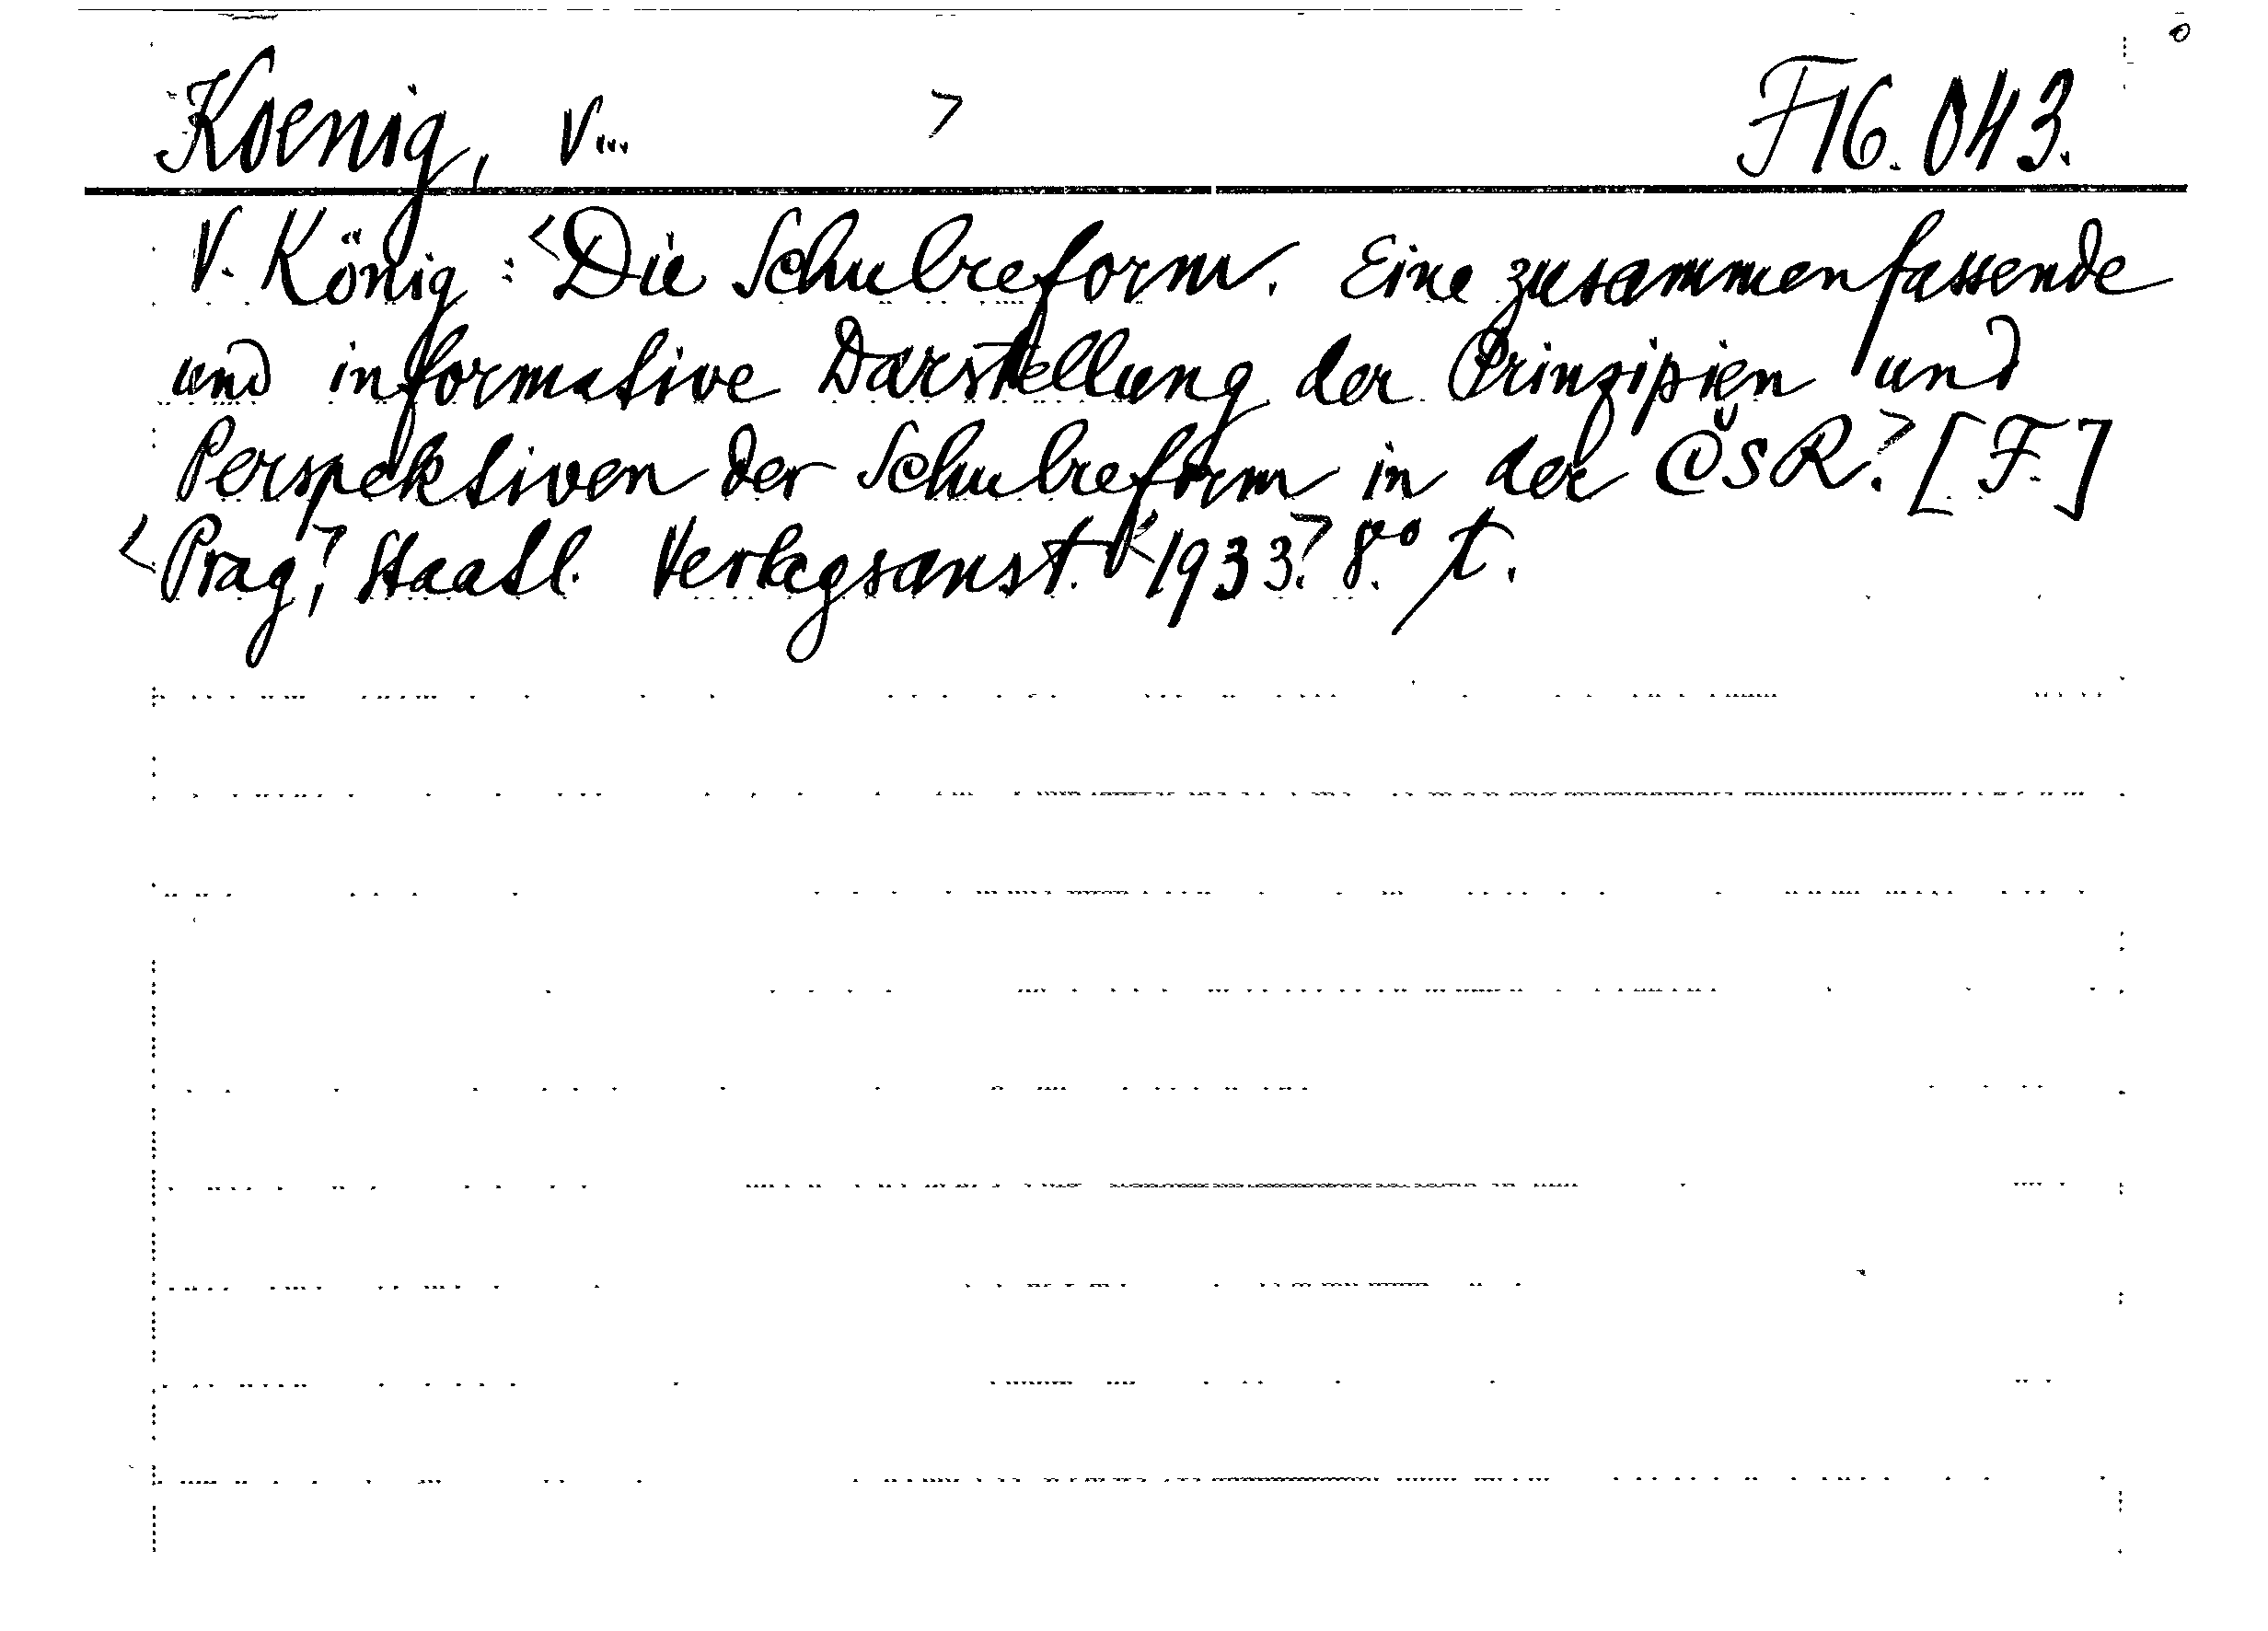 Koenig, V... > F 16.043.
V. König : <Die Schulreform. Eine zusammenfassende
und informative Darstellung der Prinzipien und
Perspektiven der Schulreform in der ČSR.> [F.]
<Prag,> Staatl. Verlagsanst. <1933.> 8.° t.